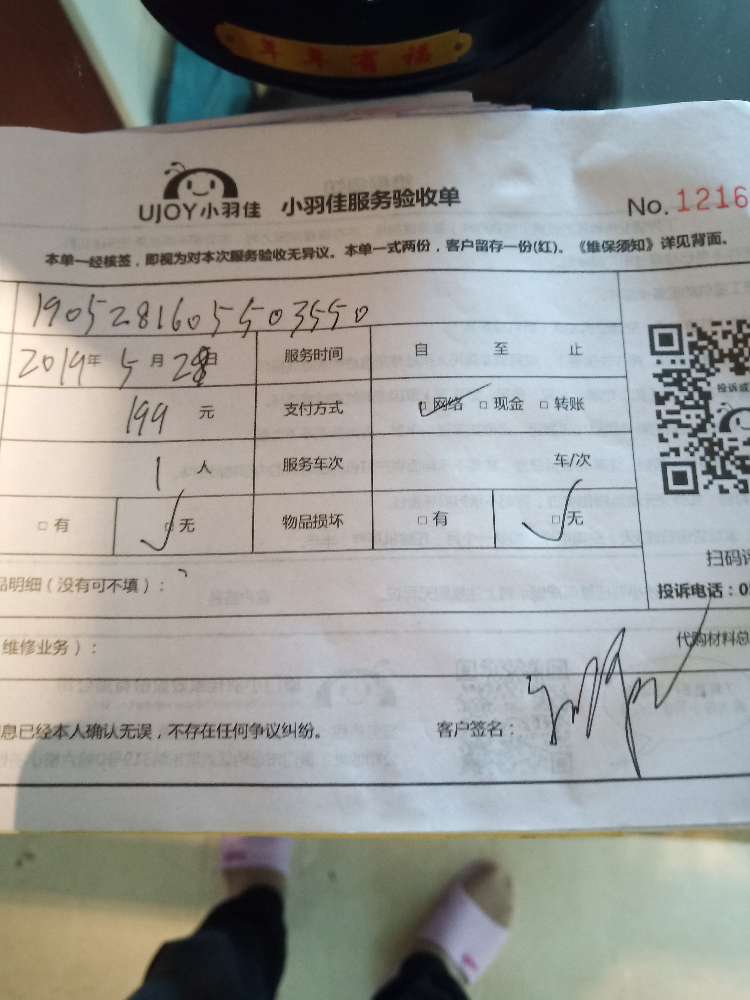 年年有福
UJOY小羽佳 小羽佳服务验收单 No.1216
本单一经核签，即视为对本次服务验收无异议。本单一式两份，客户留存一份(红)。《维保须知》详见背面。
1905281605503550
2019年 5月 28日 服务时间 自 至 止
199 元 支付方式 □网络 □现金 □转账
1 人 服务车次 车/次
□有 □无 物品损坏 □有 □无
投诉或
扫码评
品明细（没有可不填）： 投诉电话：0
维修业务）： 代购材料总
息已经本人确认无误，不存在任何争议纠纷。 客户签名：